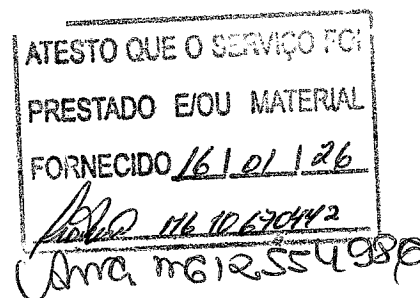 ATESTO QUE O SERVIÇO FOI
PRESTADO E/OU MATERIAL
FORNECIDO 16 / 01 / 26
116 10670442
(Ana